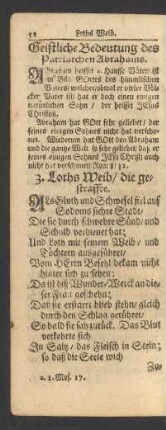 52 Loths Weib.
Geistliche Bedeutung des
Patriarchen Abrahams.
Abraham heisset a. Hauffe Väter ist
ein Bild GOttes des himmlischen
Vaters/ welcher/ obwol er vieler Völ-
cker Vater ist/ hat er doch einen einigen
natürlichen Sohn/ der heisset JEsus
Christus.
Abraham hat GOtt sehr geliebet/ der
seines einigen Sohnes nicht hat verscho-
net. Wiederum hat GOtt den Abraham
und die gantze Welt so sehr geliebet daß er
seines einigen Sohnes JEsu Christi auch
nicht hat verschonet/ Rom 8/ 32.
3. Loths Weib/ die ge-
straffte.
Als Gluth und Schwefel fiel auf
Sodoms sichre Stadt/
Die sie durch schwehre Sünd/ und
Schuld verdienet hat;
Und Loth mit seinem Weib/ und
Töchtern ausgeführet/
Vom HErrn Befehl bekam nicht
hinter sich zu sehen;
Da ist diß Wunder-Werck an die-
ser Frau geschehn;
Daß sie erstarrt blieb stehn/ gleich
durch den Schlag gerühret/
So bald sie sah zurück. Das Blut
verkehrte sich
In Saltz/ das Fleisch in Stein;
so daß die Seele wich
a. 1. Mos. 17.